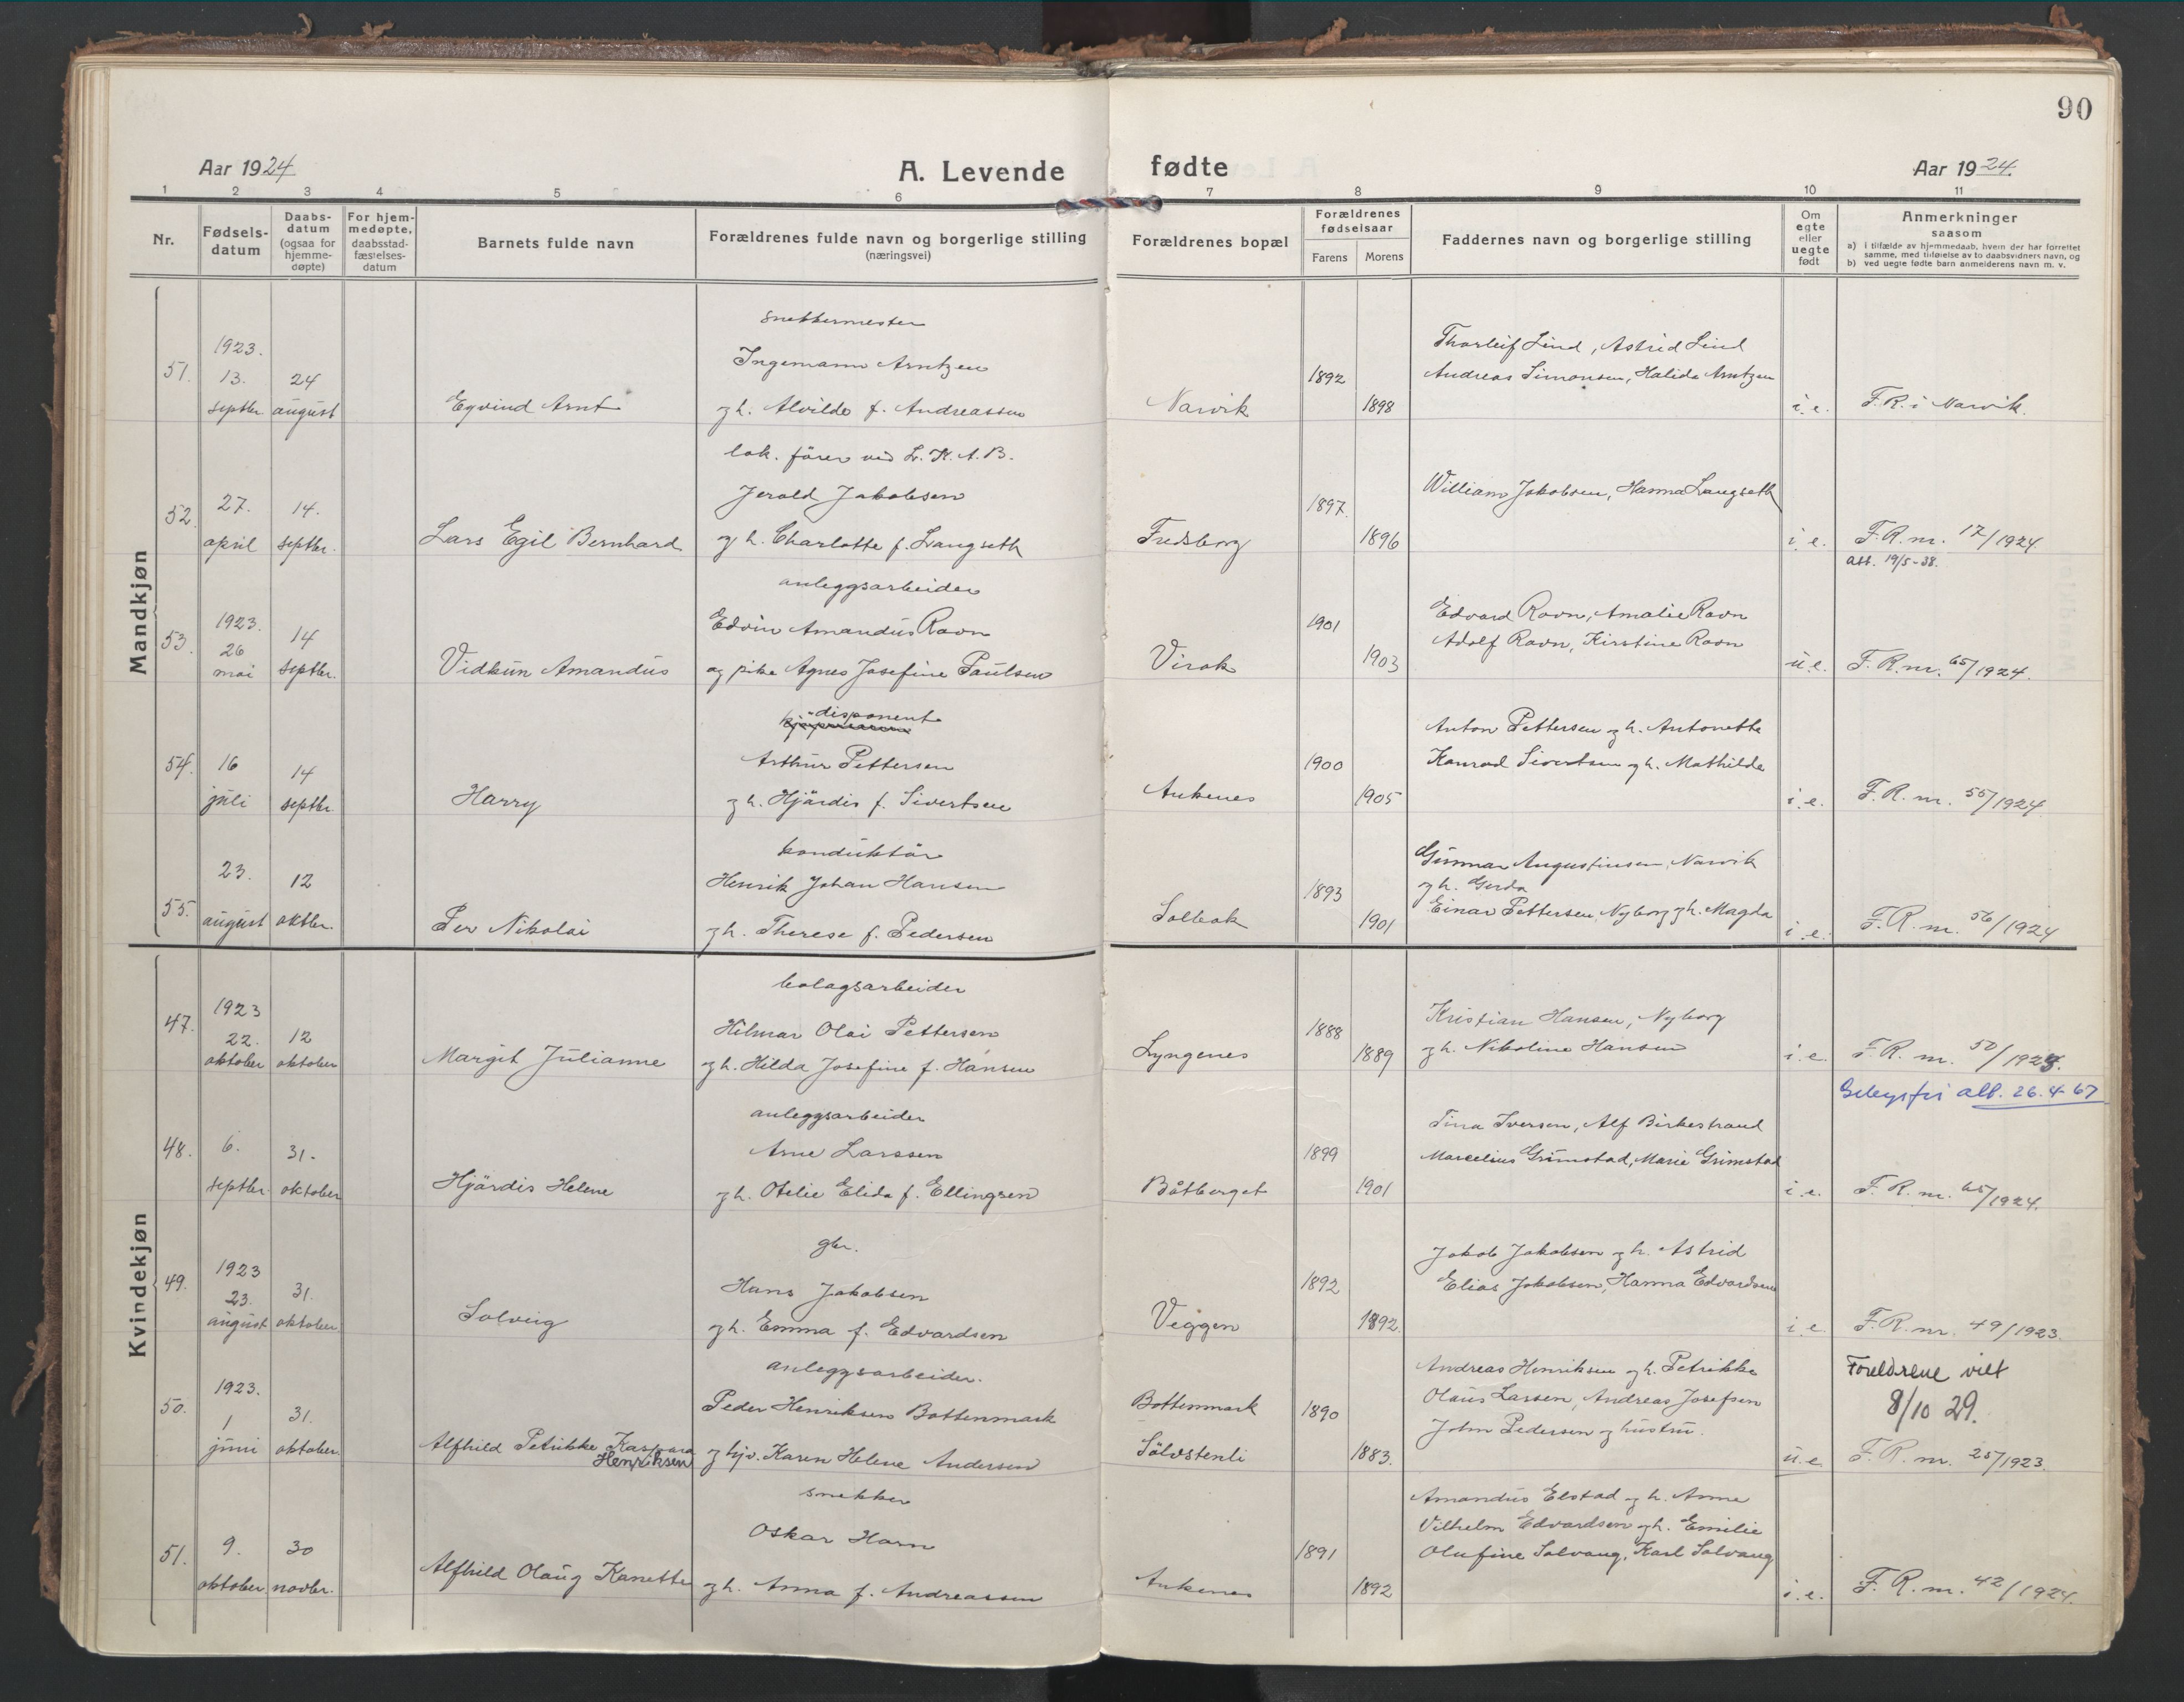 90
Aar 1924 A. Levende fødte Aar 1924.
1 2 3 4 5 6 7 8 9 10 11
Nr.
Fødsels-
datum
Daabs-
datum
(ogsaa for
hjemme-
døpte)
For hjem-
medøpte,
daabsstad-
fæstelses-
datum
Barnets fulde navn
Forældrenes fulde navn og borgerlige stilling
(næringsvei)
Forældrenes bopæl
Forældrenes
fødselsaar
Farens Morens
Faddernes navn og borgerlige stilling
Om
egte
eller
uegte
født
Anmerkninger
saasom
a) i tilfælde av hjemmedaab, hvem der har forrettet
samme, med tilføielse av to daabsvidners navn, og
b) ved uegte fødte barn anmelderens navn m. v.
Mandkjøn
snekkermester
1923. Ingemann Arntzen Thorleif Lind, Astrid Lind
51. 13. 24 1892 Andreas Simonsen, Halida Arntzen
septbr august Eyvind Arnt og h. Alvilde f. Andreassen Narvik 1898 i. e. F. R. i Narvik.
lok. fører ved L. K. A. B.
52. 27. 14. Jerald Jakobsen 1897. William Jakobsen, Hanna Langseth
april septbr. Lars Egil Bernhard og h. Charlotte f. Langseth Fredsborg 1896 i. e. F. R. nr. 17/1924.
att. 19/5-38.
anleggsarbeider
1923. Edvin Amandus Ravn 1901 Edvard Ravn, Amalie Ravn
53. 26 14 Adolf Ravn, Kirstine Ravn
mai septbr. Vidkun Amandus og pike Agnes Josefine Paulsen Virak 1903 u. e. F. R. nr. 65/1924.
disponent
54. 16 14 Arthur Pettersen 1900 Anton Pettersen og h. Antonette
Konrad Sivertsen og h. Mathilde
juli septbr. Harry og h. Hjärdis f. Sivertsen Ankenes 1905 i. e. F. R. nr. 55/1924.
konduktör
55. 23. 12 Henrik Johan Hansen 1893 Gunnar Augustinsen, Narvik
og h. Gerda
august oktbr. Per Nikolai og h. Therese f. Pedersen Solbak 1901 Einar Pettersen, Nyborg og h. Magda i. e. F. R. nr. 56/1924
Kvindekjøn
bolagsarbeider
47. 1923
22. 12 Hilmar Olai Pettersen 1888 Kristian Hansen, Nyborg
oktober oktober Margit Julianne og h. Hilda Josefine f. Hansen Lyngenes 1889 og h. Nikoline Hansen i. e. F. R. nr. 50/1923.
att. 26.4-67
anleggsarbeider
48. 6. 31. Arne Larssen 1899 Tina Iversen, Alf Birkestrand
Marcelius Grimstad, Marie Grimstad
septbr. oktober Hjärdis Helene og h. Otelie Elida f. Ellingsen Båtberget 1901 i. e. F. R. nr. 65/1924.
gbr.
49. 1923
23. 31. Hans Jakobsen 1892 Jakob Jakobsen og h. Astrid
Elias Jakobsen, Hanna Edvardsen
august oktober Solveig og h. Emma f. Edvardsen Veggen 1892. i. e. F. R. nr. 49/1923.
anleggsarbeider.
50. 1923.
1 31. Peder Henriksen Bottenmark Bottenmark 1890 Andreas Henriksen og h. Petrikke
Olaus Larsen, Andreas Josefsen
John Pedersen og hustru.
Foreldrene viet
8/10 29.
juni oktober Alfhild Petrikke Kaspara
Henriksen og hjv. Karen Helene Andersen Sölvstenli 1883. u. e. F. R. nr. 25/1923.
snekker
51. 9. 30 Oskar Harn 1891 Amandus Elstad og h. Anna
Vilhelm Edvardsen og h. Emilie
Olufine Solvang, Karl Solvang
oktober novbr. Alfhild Olaug Kanette og h. Anna f. Andreassen Ankenes 1892 i. e. F. R. nr. 42/1924.